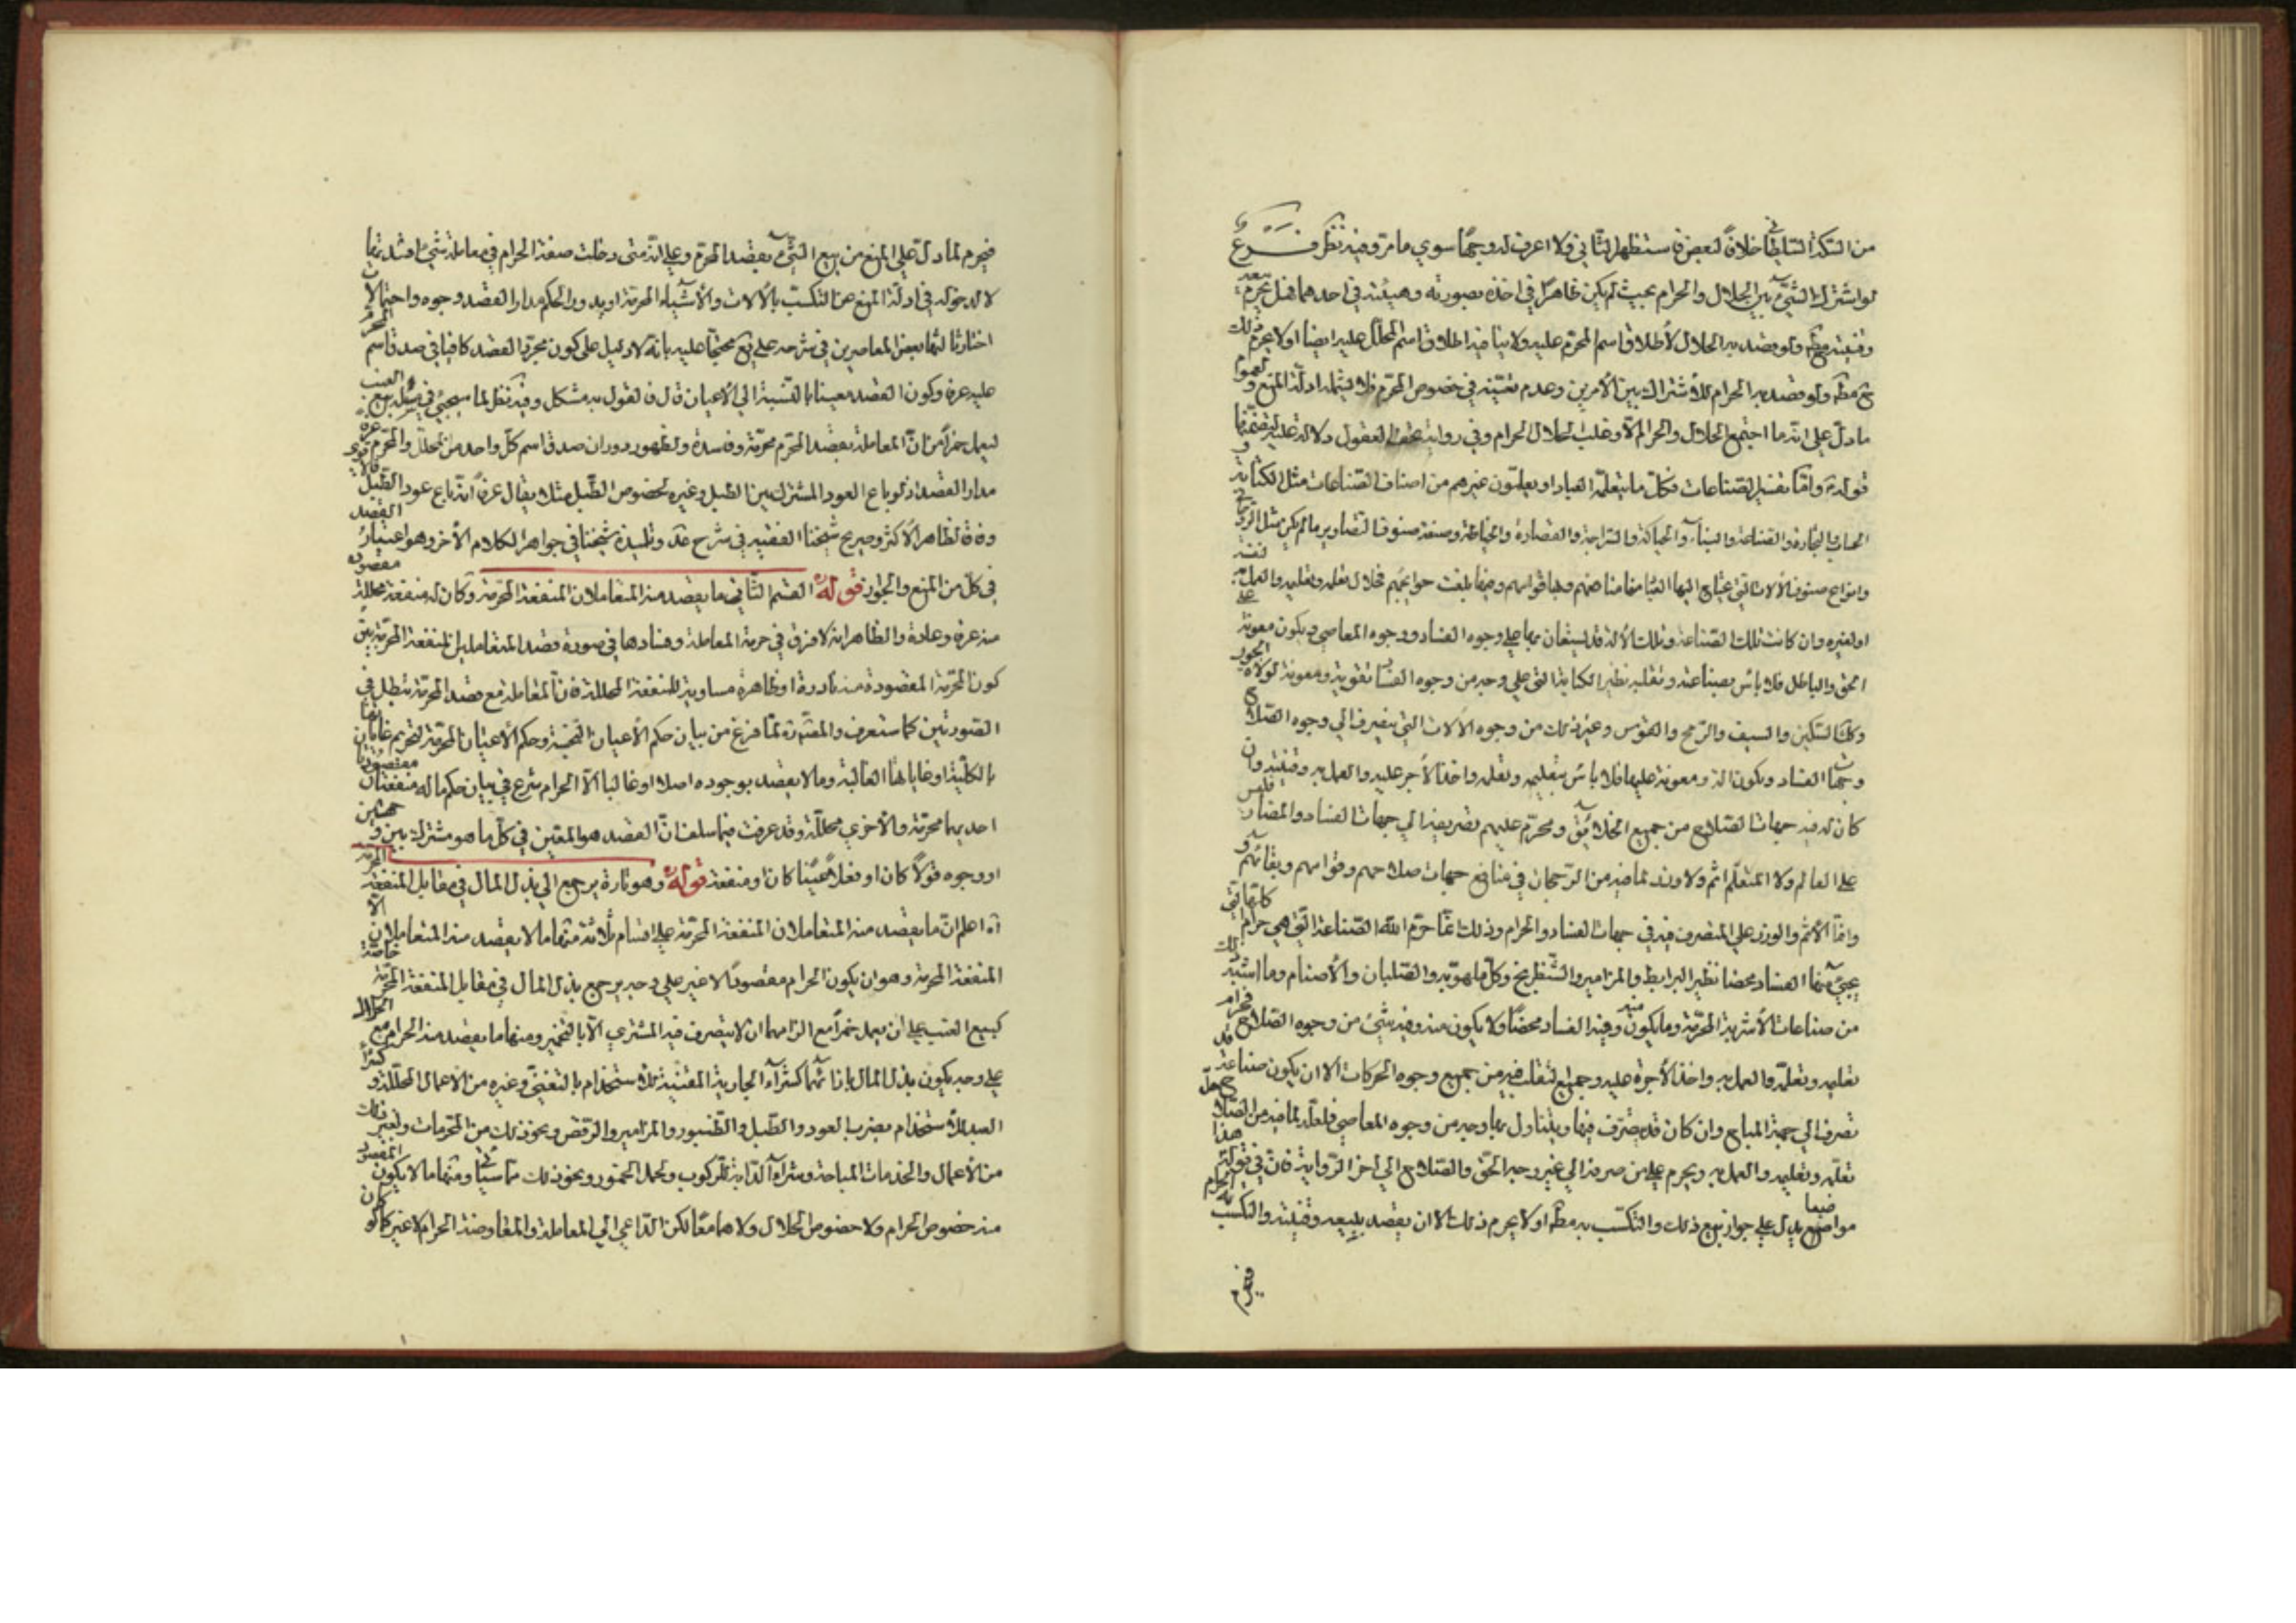 من السكة السابقة خلافًا لبعض فاستظهر الثاني ولا اعرف له وجهًا سوى ما مر وفيه نظر فــرع
لو اشترك الشيء بين الحلال والحرام بحيث لم يكن ظاهرًا في احدهما بصورته وهيئته في احدهما فهل يحرم بيعه
وقنيته مط ولو قصد به الحلال لأطلاق اسم المحرم عليه ولا ينافيه اطلاق اسم المحلل عليه ايضا اولا يحرم ذلك
مط ولو قصد به الحرام للأشتراك بين الأمرين وعدم تعينه في خصوص المحرم فلا يشمله ادلة المنع ولعموم
ما دل على انه ما اجتمع الحلال والحرام الا وغلب الحلال الحرام وفي رواية تحف العقول دلالة عليه لتضمنها
قوله ع واما تفسير الصناعات فكل ما يتعلم العباد او يعلمون غيرهم من اصناف الصناعات مثل الكتابة و
الحساب والتجارة والصياغة والبناء والحياكة والسراجة والقصارة والخياطة وصنعة صنوف التصاوير ما لم يكن مثل الروحاني
وانواع صنوف الآلات التي يحتاج اليها العباد منها منافعهم وبها قوامهم وفيها بلغة حوائجهم فحلال تعلمه وتعليمه والعمل به لنفسه
او لغيره وان كانت تلك الصناعة وتلك الآلة قد يستعان بها على وجوه الفساد ووجوه المعاصي ويكون معونة على
الحق والباطل فلا باس بصناعته وتقلبه نظير الكتابة التي على وجه من وجوه الفساد تقوية ومعونة لولاة الجور
وكك السكين والسيف والرمح والقوس وغير ذلك من وجوه الآلات التي تصرف الى وجوه الصلاح
وجهات الفساد ويكون آلة ومعونة عليها فلا باس بتعليمه وتعلمه واخذ الأجر عليه والعمل به وقنيته وان
كان له فيه جهات الصلاح من جميع الخلائق ومحرم عليهم تصريفه الى جهات الفساد والمضار فليس
على العالم ولا المتعلم اثم ولا وزر لما فيه من الرجحان في منافع جهات صلاحهم وقوامهم وبقائهم و
وانما الأثم والوزر على المتصرف فيه في جهات الفساد والحرام وذلك انما حرم الله الصناعة التي هي حرام كلها التي
يجيء منها الفساد محضا نظير البرابط والمزامير والشطرنج وكل ملهو به والصلبان والأصنام وما اشبه ذلك
من صناعات الأشربة المحرمة وما يكون منه وفيه الفساد محضًا ولا يكون منه وفيه شيء من وجوه الصلاح فحرام
تعليمه وتعلمه والعمل به واخذ الأجرة عليه وجميع التقلب فيه من جميع وجوه الحركات الا ان يكون صناعة قد
تصرف الى جهة المباح وان كان قد يتصرف فيها ويتناول بها وجه من وجوه المعاصي فلعله لما فيه من الصلاح حل
تعلمه وتعليمه والعمل به ويحرم على من صرفه الى غير وجه الحق والصلاح الى اخر الرواية فان في قوله هذا
مواضع فيها يدل على جواز بيع ذلك والتكسب به مط او لا يحرم ذلك الا ان يقصد ببيعه وقنيته والتكسب به الحرام
فيحرم
فيحرم لما دل على المنع من بيع الشيء بقصد المحرم وعلى انه متى دخلت صفة الحرام في معاملة شيء افسدتها
لا لدخوله في ادلة المنع عن التكسب بالآلات والأشياء المحرمة او يدور الحكم مدار القصد وجوه واحتمالات
اختار ثالثها بعض المعاصرين في شرحه على يع محتجًا عليه بانه لا دليل على كون مجرد القصد كافيا في صدق اسم المحرم
عليه عرفا وكون القصد معينا بالنسبة الى الأعيان قال فالقول به مشكل وفيه نظر لما سيجيء في مسئلة بيع العنب
ليعمل خمرًا من ان المعاملة بقصد المحرم محرمة وفاسدة ولظهور دوران صدق اسم كل واحد من المحلل والمحرم عرفا
مدار القصد اذ لو باع العود المشترك بين الطبل وغيره لخصوص الطبل مثلا يقال عرفًا انه باع عود الطبل
وفاقا لظاهر الأكثر وصريح شيخنا الفقيه في شرح عد وتلميذه شيخنا في جواهر الكلام الآخر وهو اعتبار القصد
في كل من المنع والجواز قوله القسم الثاني ما يقصد منه المتعاملان المنفعة المحرمة وكان له منفعة محللة مقصودة
منه عرفا وعادة والظاهر انه لا فرق في حرمة المعاملة وفسادها في صورة قصد المتعاملين المنفعة المحرمة بين
كون المحرمة المقصودة منه نادرة او ظاهرة مساوية للمنفعة المحللة فان المعاملة مع قصد المحرمة تبطل في
الصورتين كما ستعرف والمص ره لما فرغ من بيان حكم الأعيان النجسة وحكم الأعيان المحرمة لتحريم غاياتها
بالكلية او غاياتها الغالبة وما لا يقصد بوجوده اصلا او غالبا الا الحرام شرع في بيان حكم ما له منفعتان مقصودتان
احديهما محرمة والأخرى محللة وقد عرفت فيما سلف ان القصد هو المعين في كل ما هو مشترك بين جهتين
او وجوه قولًا كان او فعلًا عينًا كان او منفعة قوله وهو تارة يرجع الى بذل المال في مقابل المنفعة المحرمة
اه اعلم ان ما يقصد منه المتعاملان المنفعة المحرمة على اقسام ثلاثة منها ما لا يقصد منه المتعاملان الا
المنفعة المحرمة وهو ان يكون الحرام مقصودًا لا غير على وجه يرجع بذل المال في مقابل المنفعة المحرمة خاصة
كبيع العنب على ان يعمل خمرًا مع الزامهما ان لا يتصرف فيه المشتري الا بالتخمير ومنها ما يقصد منه الحرام مع الحلال
على وجه يكون بذل المال بازائهما كشراء الجارية المغنية للاستخدام بالتغني وغيره من الأعمال المحللة و
العبد للأستخدام بضرب العود والطبل والطنبور والمزامير والرقص ونحو ذلك من المحرمات ولغير ذلك
من الأعمال والخدمات المباحة وشراء الدابة للركوب ولحمل الخمور ونحو ذلك مما سيأتي ومنها ما لا يكون المقصود
منه خصوص الحرام ولا خصوص الحلال ولا هما معًا لكن الداعي الى المعاملة والمعاوضة الحرام لا غير كما لو كان